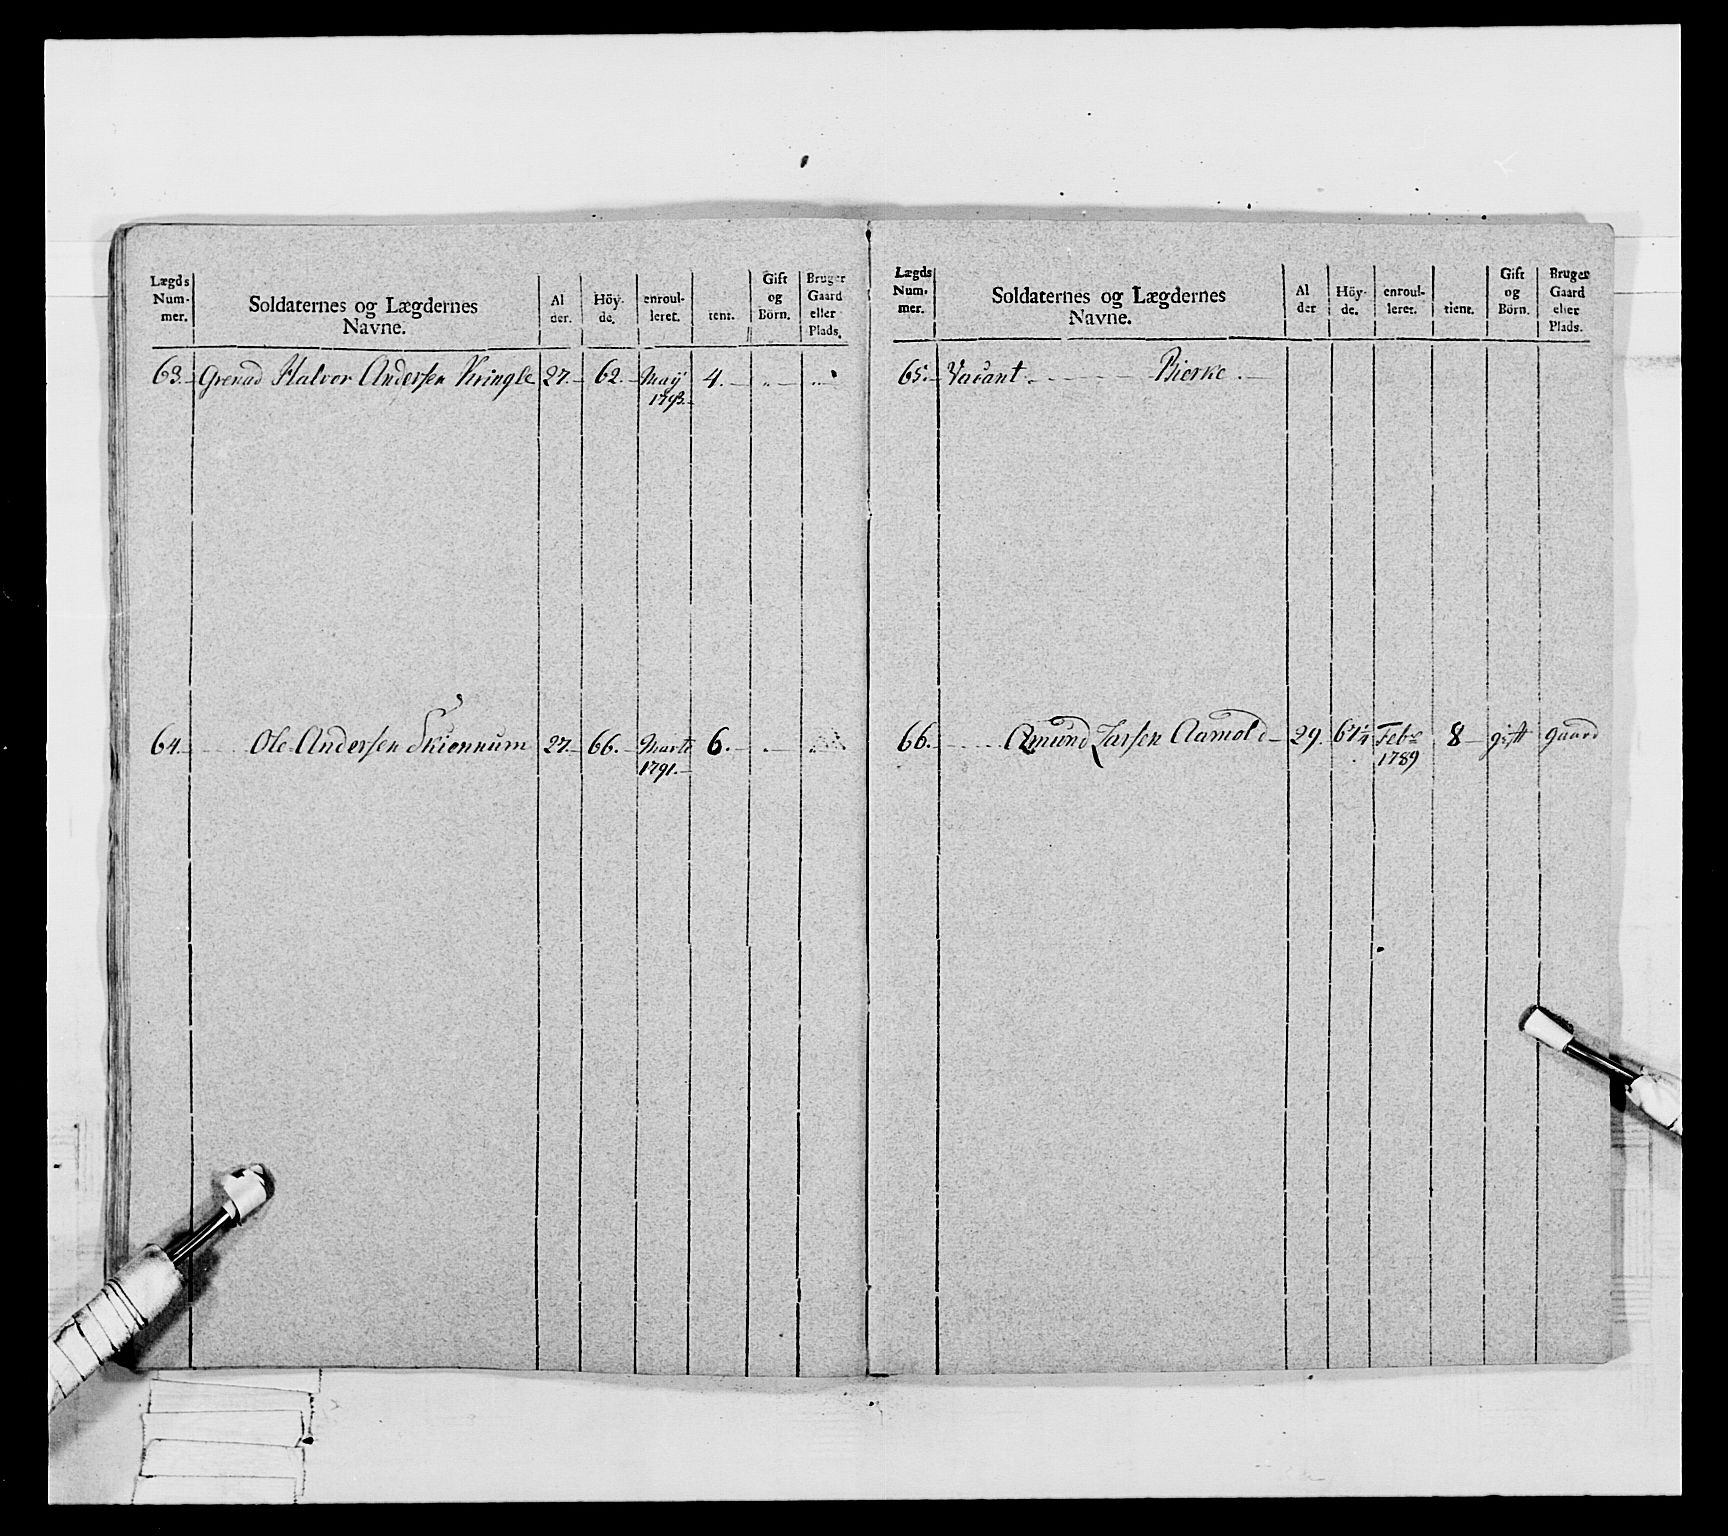 Lægds Num- mer. Soldaternes og Lægdernes Navne. Al der. Höy- de. enroul- leret. tient. Gift og Börn. Bruger Gaard eller Plads.
63. Grenad Halvor Andersen Kringle 27. 62. Maÿ 4.
1793.
64. Ole Andersen Skionnum 27. 66. Marti 6.
1791.
Lægds Num- mer. Soldaternes og Lægdernes Navne. Al der Höy- de. enroul- leret. tient. Gift og Börn. Bruger Gaard eller Plads.
65. Vacant Bierke
66. Amund Larsen Aamold 29. Febr 8 gift gaard
1789